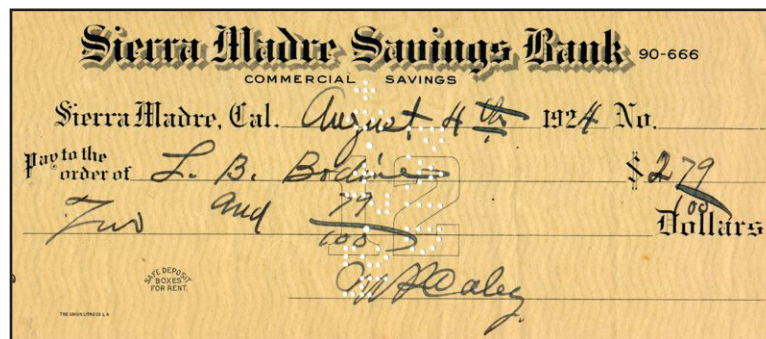 Sierra Madre Savings Bank 90-666
COMMERCIAL SAVINGS
Sierra Madre, Cal. August 4th 1924 No.
Pay to the order of L. B. Bodine $ 2 79/100
Two and 79/100 Dollars
SAFE DEPOSIT
BOXES
FOR RENT.
Caley
THE UNION LITHO CO. L.A.